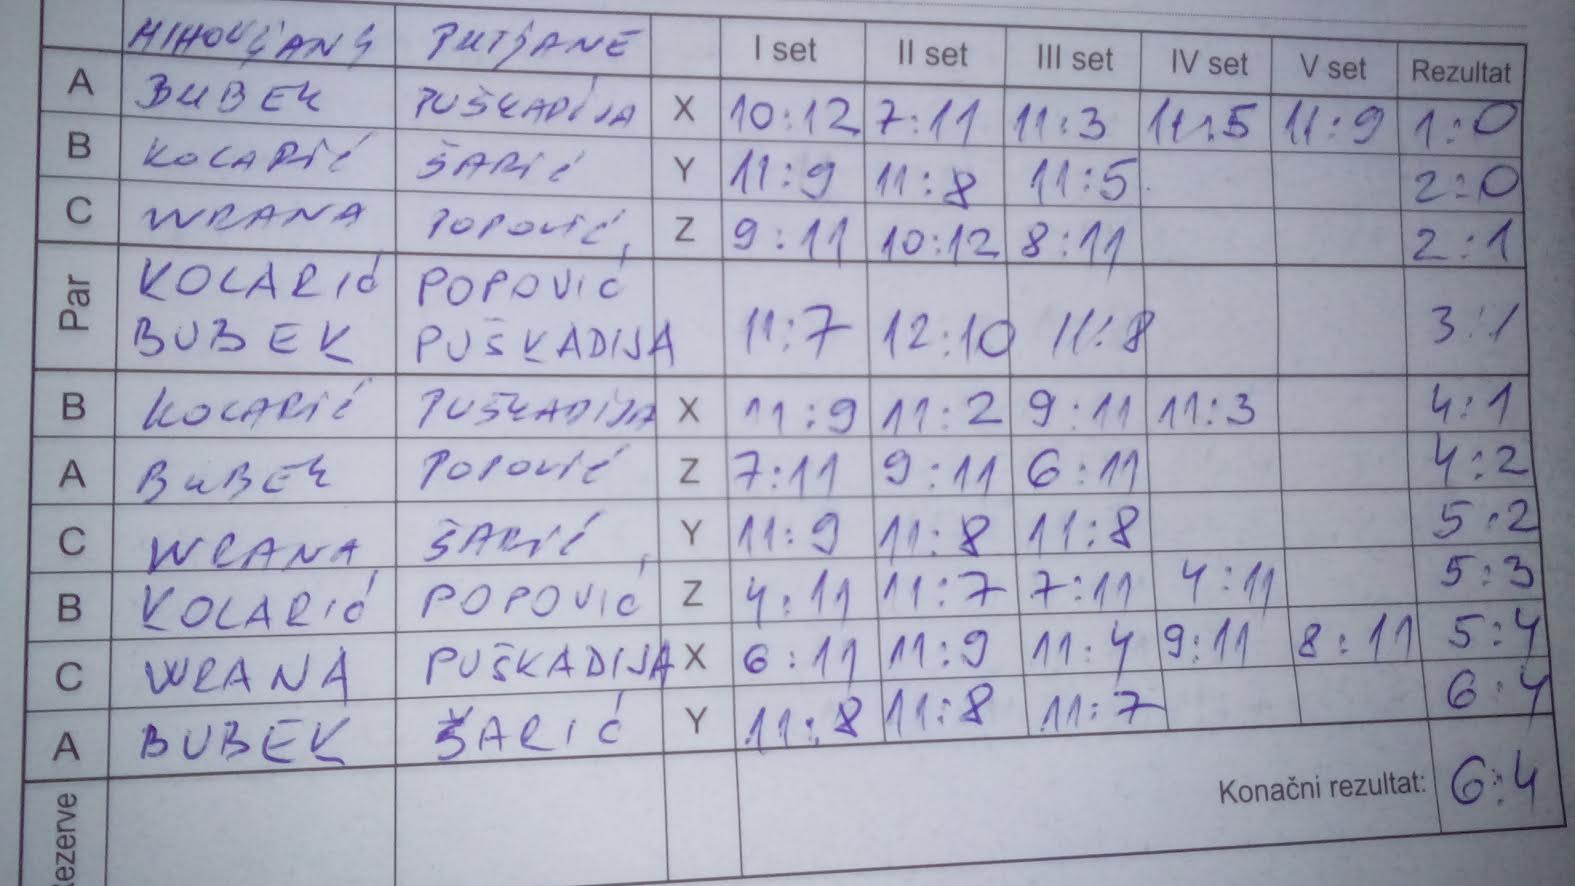 MIHOVLJANY PUTJANE I set II set III set IV set V set Rezultat
A BUBEK PUŠKADIJA X 10:12 7:11 11:3 11:5 11:9 1:0
B KOLARIĆ ŠARIĆ Y 11:9 11:8 11:5 2:0
C WRANA POPOVIĆ Z 9:11 10:12 8:11 2:1
Par KOLARIĆ POPOVIĆ
BUBEK PUŠKADIJA 11:7 12:10 11:8 3:1
B KOLARIĆ PUŠKADIJA X 11:9 11:2 9:11 11:3 4:1
A BUBEK POPOVIĆ Z 7:11 9:11 6:11 4:2
C WRANA ŠARIĆ Y 11:9 11:8 11:8 5:2
B KOLARIĆ POPOVIĆ Z 4:11 11:7 7:11 4:11 5:3
C WRANA PUŠKADIJA X 6:11 11:9 11:4 9:11 8:11 5:4
A BUBEK ŠARIĆ Y 11:8 11:8 11:7 6:4
Konačni rezultat: 6:4